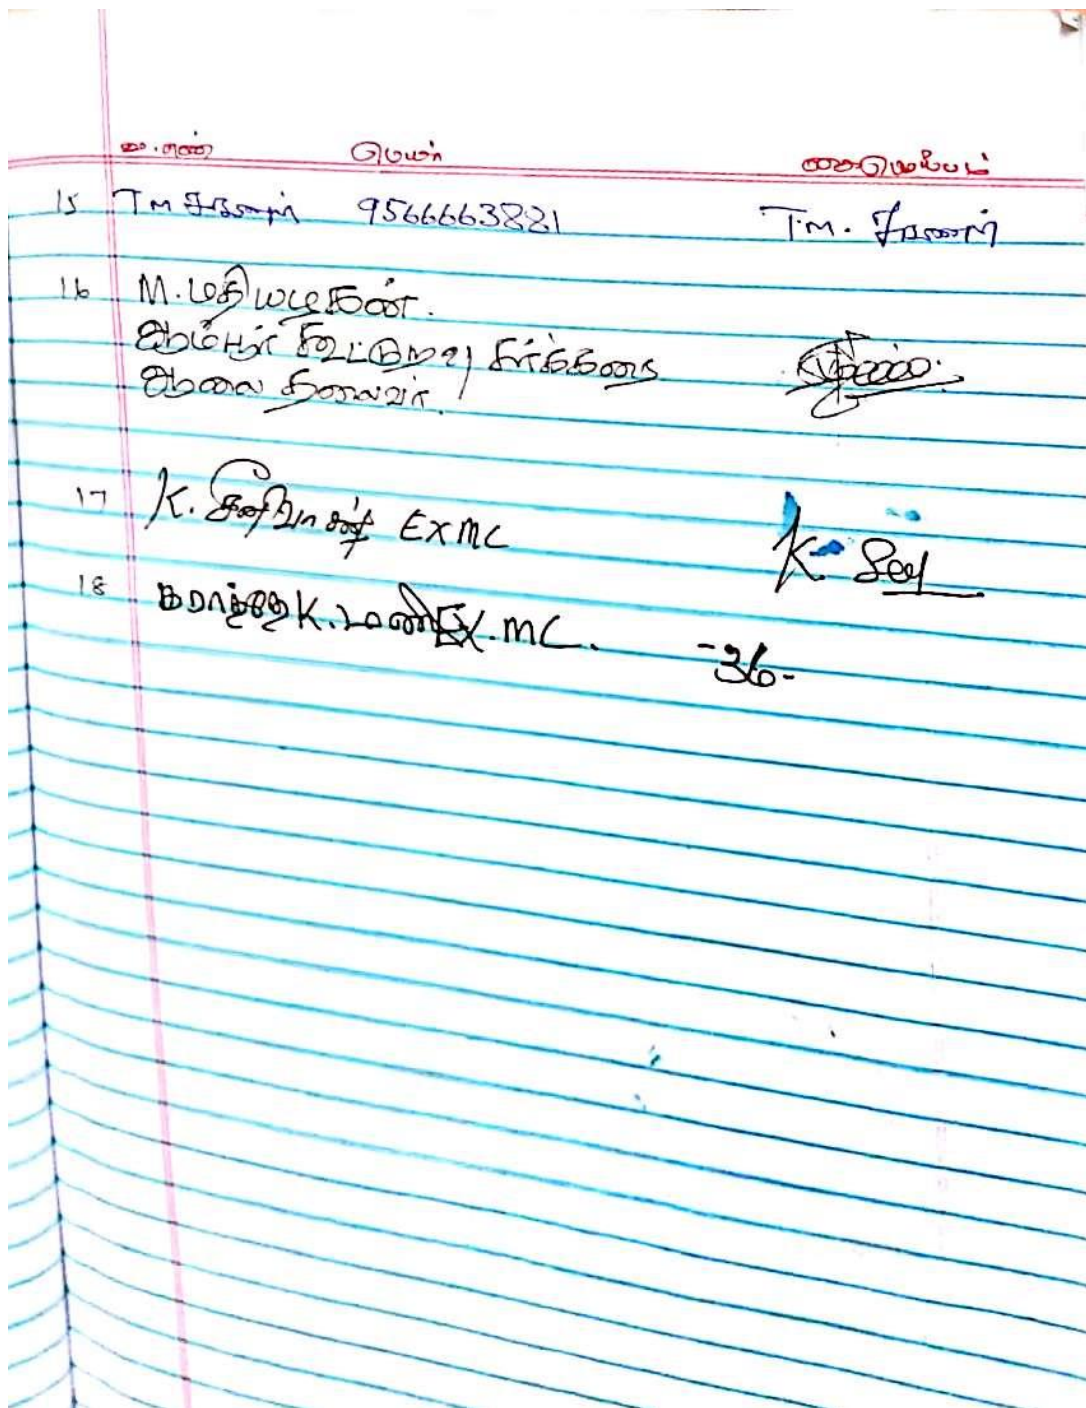 வ.எண் பெயர் கையொப்பம்
15 T.M சரவணன் 9566663881 T.M. சரவணன்
16 M.மதியழகன்.
ஆம்பூர் கூட்டுறவு சர்க்கரை
ஆலை தலைவர்.
17 K. சீனிவாசன் EXMC K.
18 கராத்தே K.மணி EX.MC.
-36-